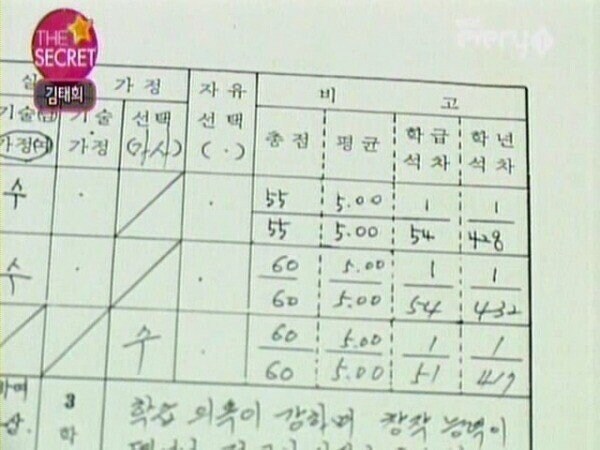 THE
SECRET
김태희
every1
실 가 정 자 유 비 고
기술(남) 기 술 선 택 선 택 총 점 평 균 학 급 학 년
가정(여) 가 정 (가 사) ( . ) 석 차 석 차
수 . . 55 5.00 1 1
55 5.00 54 428
수 . . 60 5.00 1 1
60 5.00 54 432
수 . 60 5.00 1 1
60 5.00 51 417
하며 3 학습 의욕이 강하며 창작 능력이
학